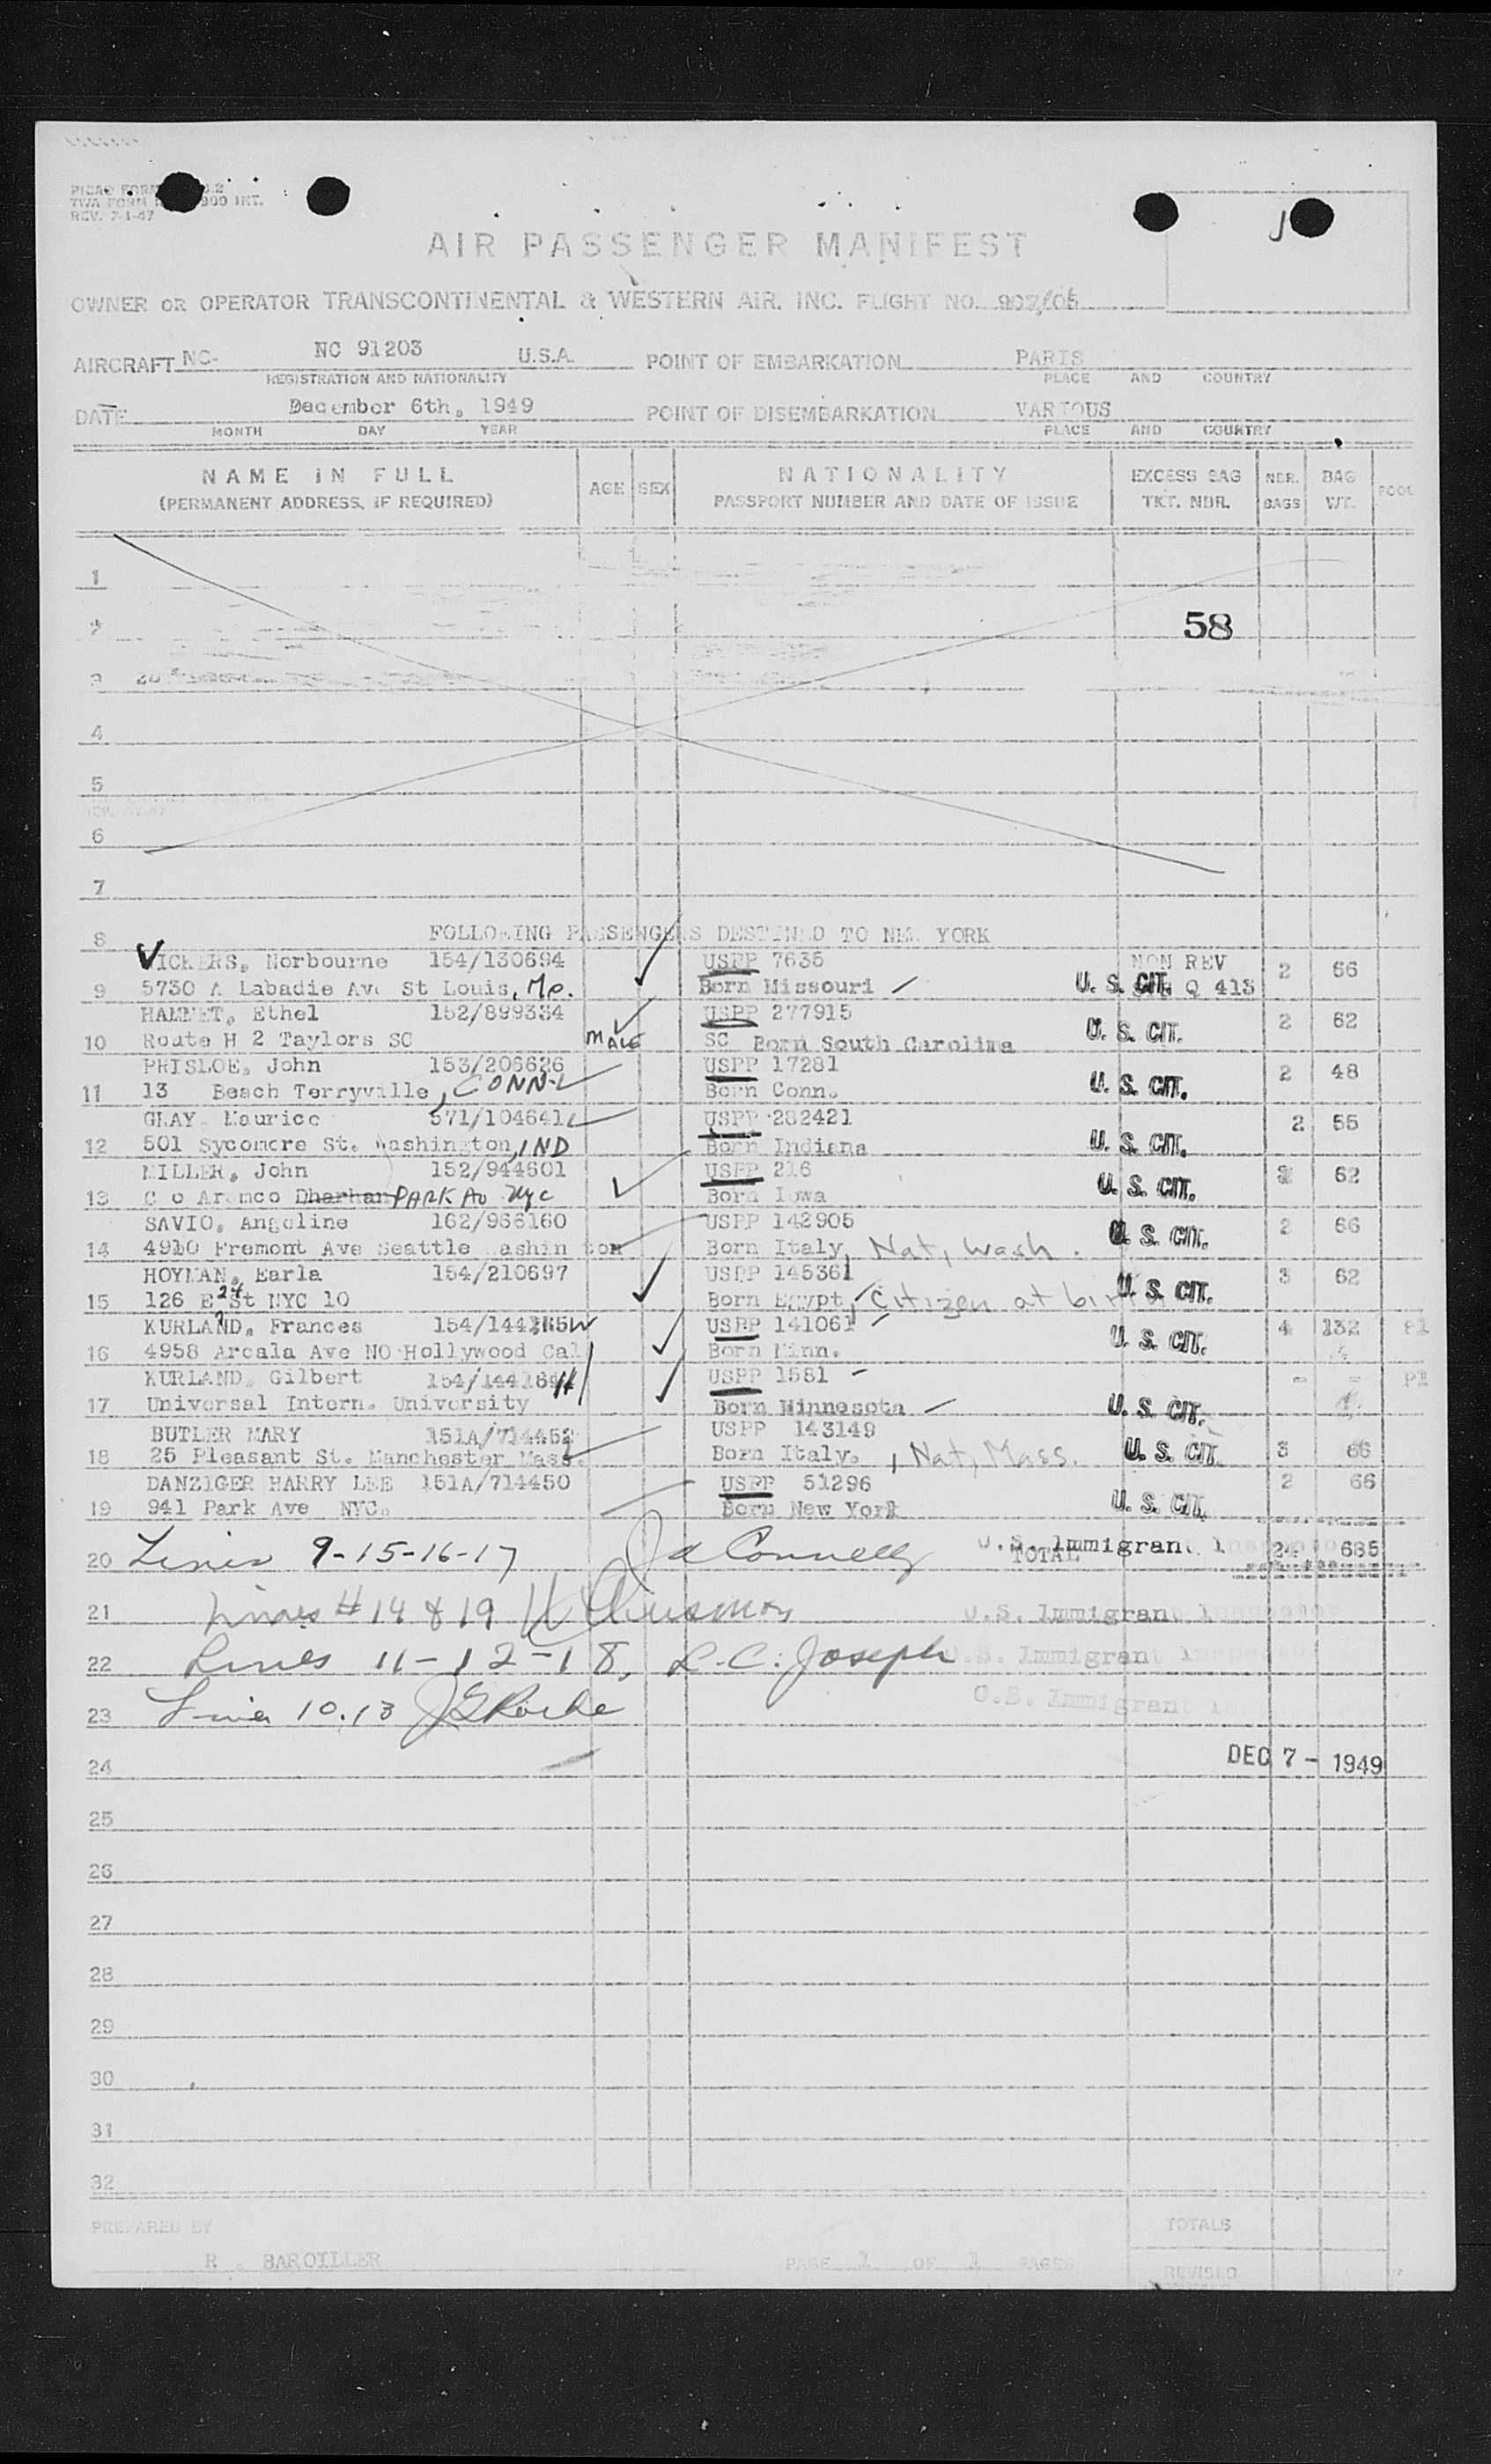 PICAO FORM
TWA FORM 900 INT.
REV. 7-1-47
AIR PASSENGER MANIFEST
OWNER OR OPERATOR TRANSCONTINENTAL & WESTERN AIR, INC. FLIGHT NO.
AIRCRAFT NC- NC 91203 U.S.A. POINT OF EMBARKATION PARIS
REGISTRATION AND NATIONALITY PLACE AND COUNTRY
DATE December 6th, 1949 POINT OF DISEMBARKATION VARIOUS
MONTH DAY YEAR PLACE AND COUNTRY
NAME IN FULL AGE SEX NATIONALITY EXCESS BAG NBR. BAG POOL
(PERMANENT ADDRESS, IF REQUIRED) PASSPORT NUMBER AND DATE OF ISSUE TKT. NBR. BAGS WT.
1
2 58
3
4
5
6
7
8 FOLLOWING PASSENGERS DESTINED TO NEW YORK
VICKERS, Norbourne 154/130694 USPP 7635 NON REV 2 66
9 5730 A Labadie Ave St Louis, Mo. Born Missouri U. S. CIT. Q 413
Ethel 152/899334 USPP 277915 2 62
10 Route H 2 Taylors SC MALE SC Born South Carolina U. S. CIT.
PRISLOE, John 153/206626 USPP 17281 2 48
11 13 Beach Terryville, CONN Born Conn. U. S. CIT.
GRAY, Maurice 571/104641 USPP 282421 2 55
12 501 Sycomore St. Washington, IND Born Indiana U. S. CIT.
MILLER, John 152/944601 USPP 216 62
13 C o Aramco Dharhan PARK AV NYC Born Iowa U. S. CIT.
SAVIO, Angeline 162/966160 USPP 142905 2 66
14 4910 Fremont Ave Seattle Washington Born Italy, Nat, Wash. U. S. CIT.
HOYMAN, Earla 154/210697 USPP 145361 3 62
15 126 E 24 St NYC 10 Born Egypt, Citizen at birth U. S. CIT.
KURLAND, Frances USPP 141061 4 132 P1
16 4958 Arcala Ave NO Hollywood Cal Born Minn. U. S. CIT.
KURLAND, Gilbert USPP 1581 - - P1
17 Universal Intern. University Born Minnesota U. S. CIT.
BUTLER MARY 151A/714452 USPP 143149
18 25 Pleasant St. Manchester Mass. Born Italy. , Nat, Mass. U. S. CIT. 3 66
DANZIGER HARRY LEE 151A/714450 USPP 51296 2 66
19 941 Park Ave NYC. Born New York U. S. CIT.
20 Lines 9-15-16-17 Connelly U.S. Immigrant TOTAL 24 685
21 Lines # 14 & 19 U.S. Immigrant Inspector
22 Lines 11-12-18, L.C. Joseph U.S. Immigrant Inspector
23 Line 10.13 U.S. Immigrant
24 DEC 7 - 1949
25
26
27
28
29
30
31
32
PREPARED BY TOTALS
R. BAROILLER PAGE 1 OF 1 PAGES REVISED